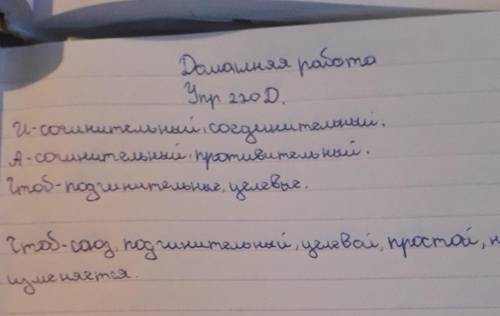 Домашняя работа
Упр 220 D.
И-сочинительный, соединительный.
А-сочинительный, противительный.
Чтоб-подчинительные, целевые.
Чтоб-союз, подчинительный, целевой, простой, н
изменяется.